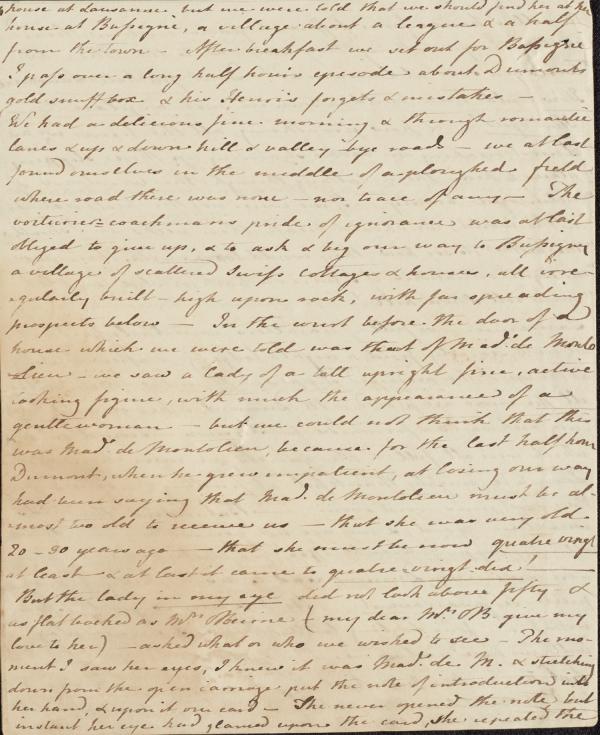 house at Lausanne but we were told that we should find her at her
house at Bussigni, a village about a league & a half
from the town – After breakfast we set out for Bussigni
I pass over a long half hour's episode about Dumont's
gold snuff box & his Henri's forgets & mistakes –
We had a delicious fine morning & through romantic
lanes & up & down hill & valley bye roads – we at last
found ourselves in the middle of a ploughed field
where road there was none – nor trace of any – The
voiturier-coachman's pride of ignorance was at last
obliged to give up, & to ask & beg our way to Bussigny
a village of scattered Swiss cottages & houses, all irre-
-gularly built – high upon rock, with far spreading
prospects below – In the court before the door of a
house which we were told was that of Mad. de Monto
-lieu – we saw a lady of a tall upright fine, active
looking figure, with much the appearance of a
gentlewoman – but we could not think that this
was Mad. de Montolieu, because for the last half hour
Dumont, when he grew impatient, at losing our way
had been saying that Mad. de Montolieu must be al-
-most too old to receive us – that she was very old
20 – 30 years ago – that she must be now quatre vingt
at least & at last it came to quatre-vingt dix!
But the lady in my eye did not look above fifty – &
as flat backed as Mrs. O'Beirne (my dear Mrs. O'B. give my
love to her) – asked what or who we wished to see – The mo-
ment I saw her eyes, I knew it was Mad. de M. & stretching
down from the open carriage put the note of introduction into
her hand, & upon it our card – She never opened the note but
instant her eye had glanced upon the card, she repeated the